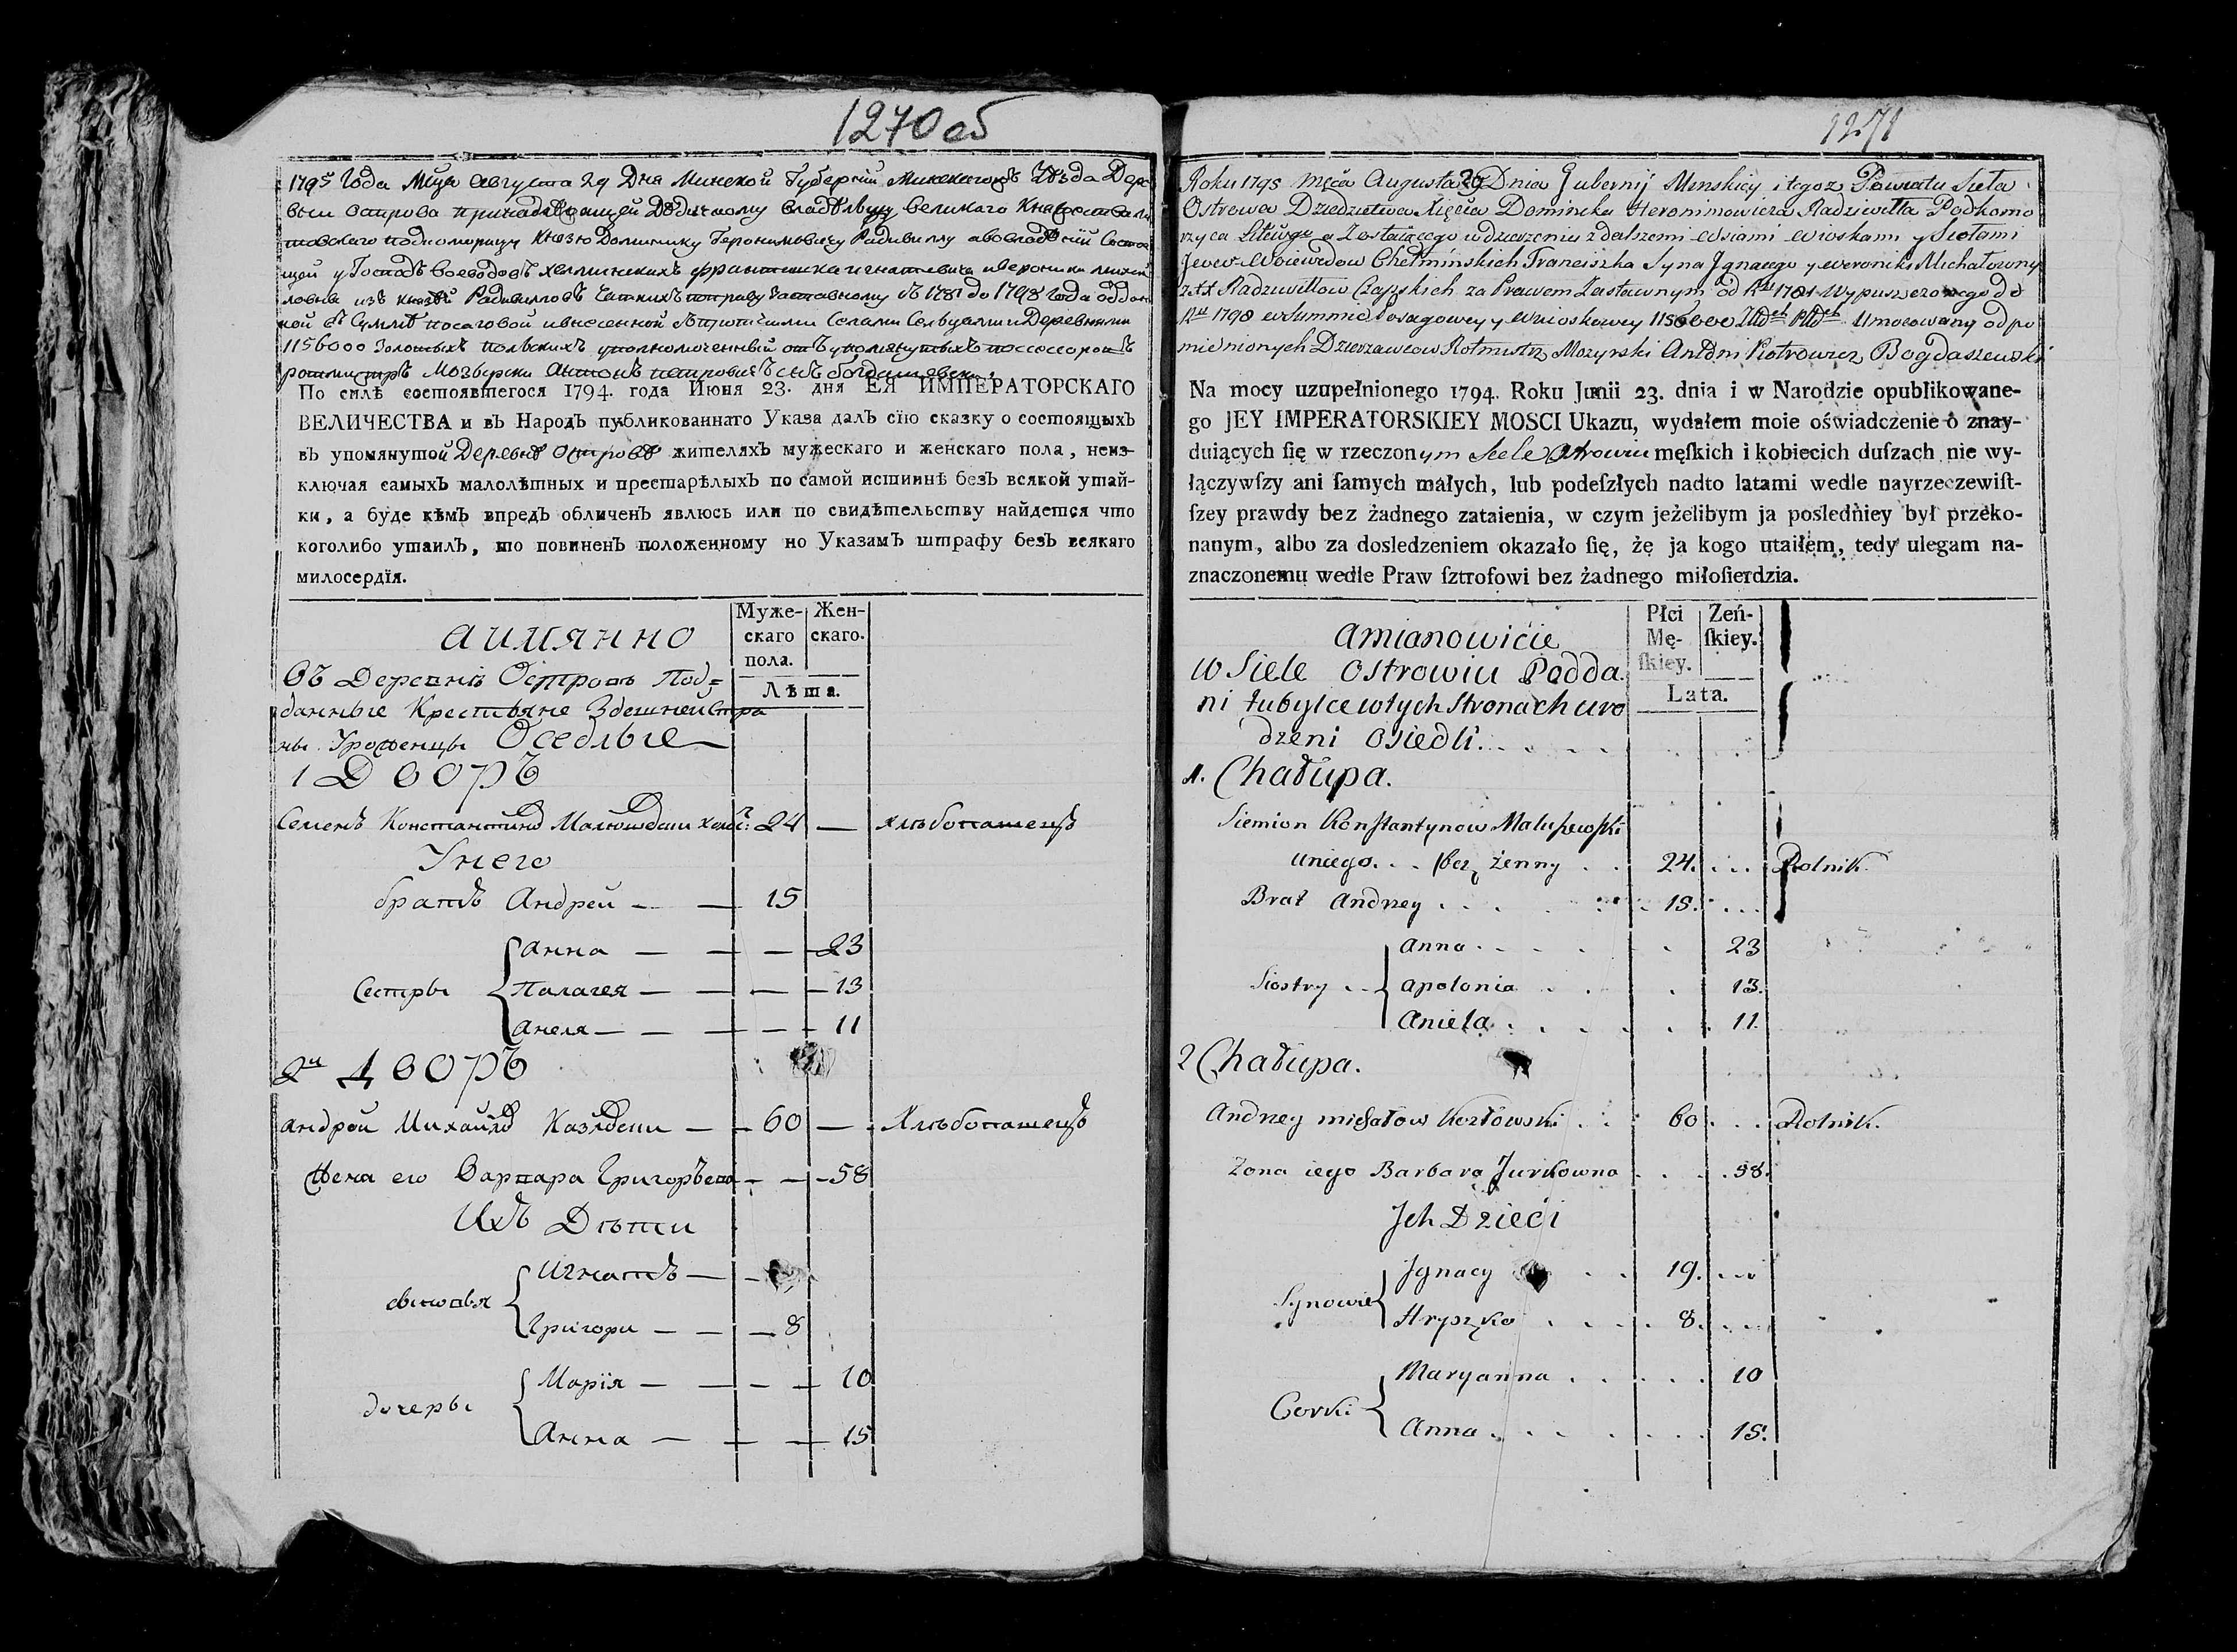 1270 об
1795 Года Мца Августа 29 Дня Минской Губернии Минскаго Уезда Дере
вни Острова принадлежащей Дедичному владельцу великаго Княжества Ли
товскаго подкоморищу Князю Доминику Геронимовичу Радивиллу а во владении Состоя
щей у Господъ воеводовъ хелминскихъ франтишка игнатиевича и вероники михай
ловны изъ князей Радивиловъ Чапскихъ по праву Заставному съ 1781 до 1798 года отдан
ной въ Суммѣ посаговой и внесенной Селами Сельцами и Деревнями
1156000 Золотыхъ польскихъ уполномоченный отъ упомянутыхъ поссесоровъ
ротмистръ Мозырски Антонъ петровичъ сынъ богдашевски
По силѣ состоявшегося 1794. года Июня 23. дня ЕЯ ИМПЕРАТОРСКАГО
ВЕЛИЧЕСТВА и въ Народъ публикованнаго Указа далъ сїю сказку о состоящыхъ
въ упомянутой Деревнѣ Островѣ жителяхъ мужескаго и женскаго пола, неиз-
ключая самыхъ малолѣтных и престарѣлыхъ по самой истиннѣ безъ всякой утай-
ки, а буде кѣмъ впредъ обличенъ явлюсь или по свидѣтельству найдется что
коголибо утаилъ, то повиненъ положенному по Указамъ штрафу безъ всякаго
милосердїя.
аимянно
Муже- Жен-
скаго скаго.
пола.
Лѣта.
Въ Деревнѣ Островѣ Под=
данные Крестьяне Здешней Стра
ны Уроженцы Оседлые
1 Дворъ
Семенъ Константиновъ Малюшевски холос: 24 — хлѣбопашецъ
У него
братъ Андрей — — 15
Сестры
Анна — — — 23
Палагея — — — 13
Анеля — — — 11
2й Дворъ
Андрей Михайловъ Козловски — 60 — Хлѣбопашецъ
Жена его Варвара Григорьева — — 58
Ихъ Дѣти
сыновья
Игнатъ — —
Григори — — 8
дочеры
Марія — — — 10
Анна — — — 15
1271
Roku 1795 Mca Augusta 29 Dnia Gubernij Minskiey i tegoz Powiatu Sieła
Ostrowa Dziedzictwa Xięcia Dominika Heronimowicza Radziwiłła Podkomo
rzyca Litewgo a Zostaiącego w dzierzeniu z dalszemi Wsiami Wioskami y Siołami
Jww Woiewodow Chełmińskich Franciszka Syna Jgnacego y Weroniki Michałowny
z XX Radziwiłłow Czapskich za Prawem Zastawnym od Rku 1781 Wypuszczonego do
Rku 1798 w Summie Posagowey y Wnioskowey 1156000 Złłch Pllch Umocowany od po
mienionych Dzierzawcow Rotmistrz Mozyrski Antoni Piotrowicz Bogdaszewski
Na mocy uzupełnionego 1794. Roku Junii 23. dnia i w Narodzie opublikowane-
go JEY IMPERATORSKIEY MOSCI Ukazu, wydałem moie oświadczenie o znay-
duiących ſię w rzeczonym Siele Ostrowiu męſkich i kobiecich duſzach nie wy-
łączywſzy ani ſamych małych, lub podeſzłych nadto latami wedle nayrzeczewiſt-
ſzey prawdy bez żadnego zataienia, w czym jeżelibym ja posledniey był przeko-
nanym, albo za dosledzeniem okazało ſię, żę ja kogo utaiłem, tedy ulegam na-
znaczonemu wedle Praw ſztrofowi bez żadnego miłoſierdzia.
amianowicie
Płci Zeń-
Mę- ſkiey.
ſkiey.
Lata.
w Siele Ostrowiu Podda
ni tubylce w tych stronach uro
dzeni osiedli
1. Chałupa.
Siemion Konstantynow Maluszewski
u niego . . . bez żenny . . 24. . . . Rolnik.
Brat Andrzey . . . . 15. . . .
Siostry
Anna . . . . 23
Apolonia . . . 13.
Anieła . . . . 11.
2 Chałupa.
Andrzey Michałow Kozłowski . . 60 . . . Rolnik.
Zona iego Barbara Jurkowna . . . 58.
Jch Dzieci
Synowie
Jgnacy . . 19. . . .
Hryszko . . . . 8. . . .
Corki
Maryanna . . . . . 10
Anna . . . . . . 15.